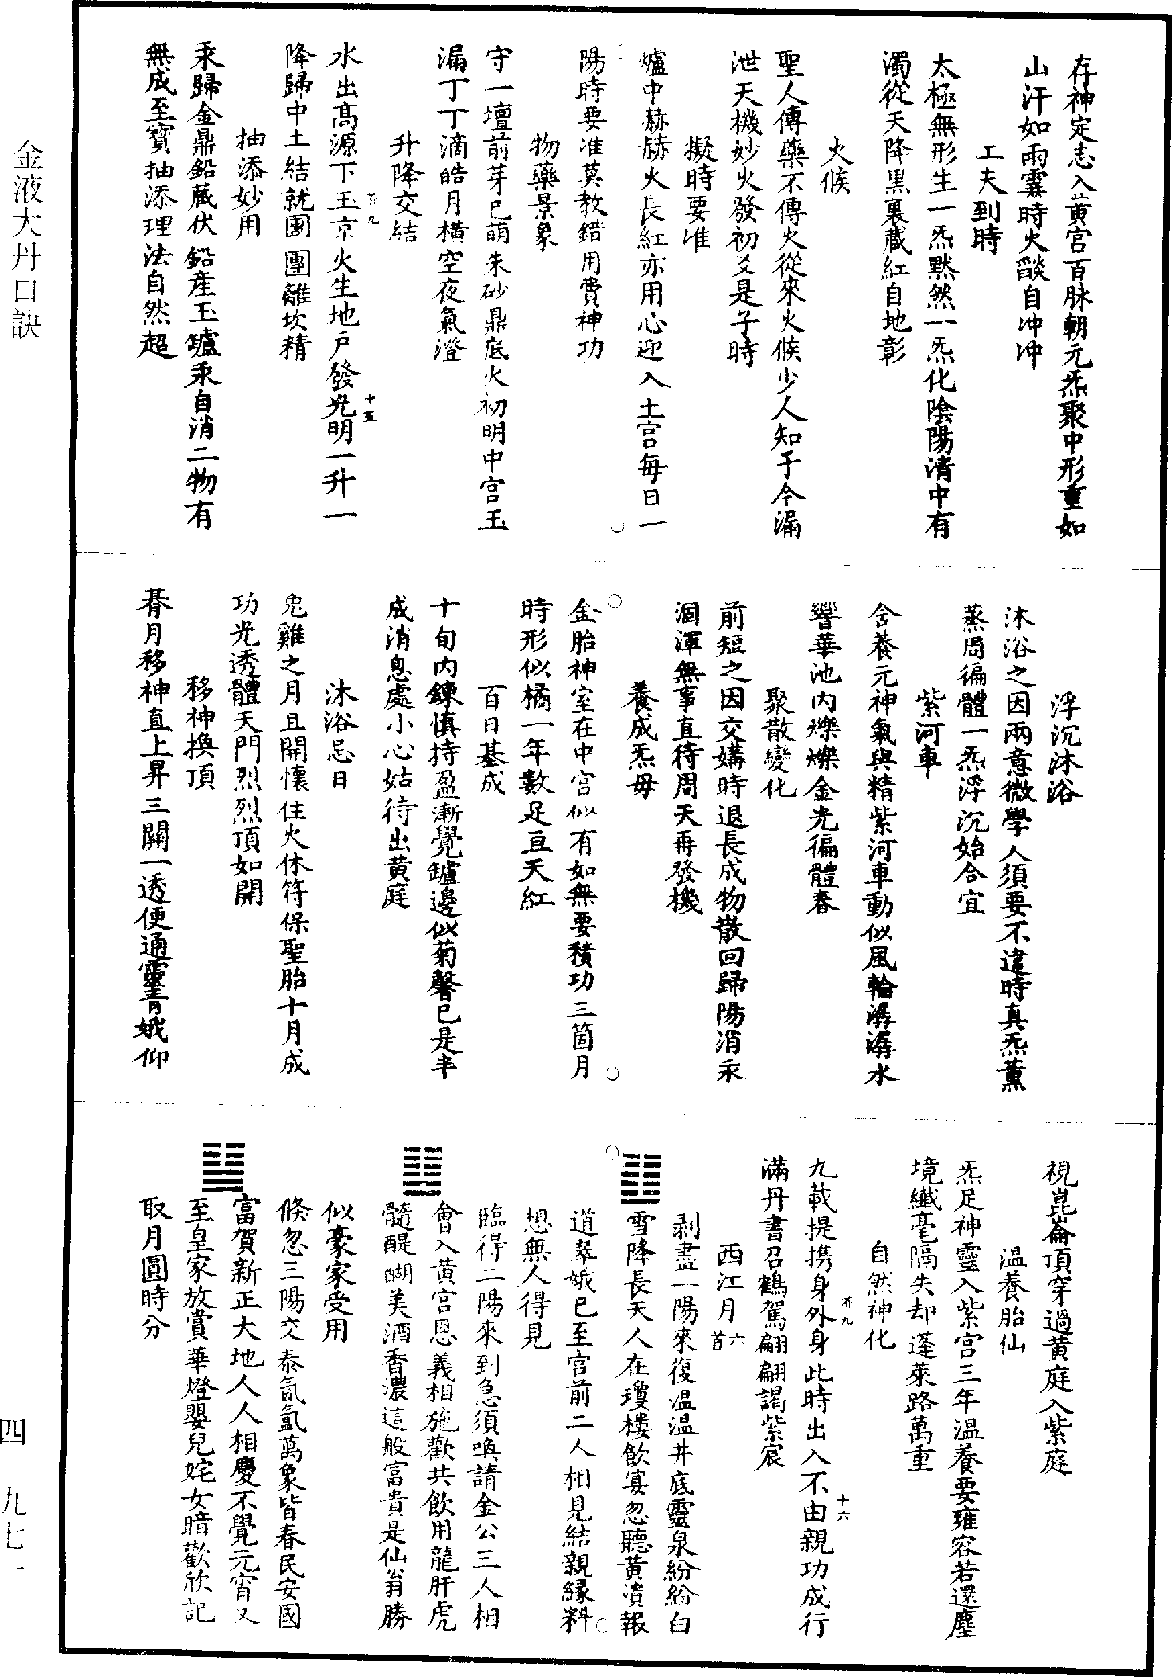 存神定志入黃宮百脉朝元炁聚中形重如
山汗如雨霎時火燄自冲冲
工夫到時
太極無形生一炁黙然一炁化陰陽清中有
濁從天降黑裏藏紅自地彰
火候
聖人傳藥不傳火從來火候少人知于今漏
泄天機妙火發初爻是子時
擬時要准
爐中赫赫火長紅亦用心迎入土宮每日一
陽時要准莫教錯用費神功
物藥景象
守一壇前芽已萌朱砂鼎底火初明中宮玉
漏丁丁滴皓月横空夜氣澄
升降交結
水出髙源下玉京火生地戶發光明一升一
降歸中土結就團團離坎精
抽添妙用
汞歸金鼎鉛藏伏鉛産玉鑪汞自消二物有
無成至寳抽添理法自然超
浮沉沐浴
沐浴之因兩意微學人須要不違時真炁薰
蒸周徧體一炁浮沉始合宜
紫河車
含養元神氣與精紫河車動似風輪潺潺水
響華池内爍爍金光徧體春
聚散變化
前短之因交媾時退長成物散回歸陽消汞
涸渾無事直待周天再發機
養成炁母
金胎神室在中宮似有如無要積功三箇月
時形似橘一年數足亘天紅
百日基成
十旬内鍊慎持盈漸覺鑪邊似菊馨已是丰
成消息處小心姑待出黃庭
沐浴忌日
兎雞之月且開懷住火休符保聖胎十月成
功光透體天門烈烈頂如開
移神換頂
朞月移神直上昇三關一透便通靈青娥仰
視崑崙頂穿過黄庭入紫庭
温養胎仙
炁足神靈入紫宮三年温養要雍容若還塵
境纖毫隔失却蓬萊路萬重
自然神化
九載提携身外身此時出入不由親功成行
滿丹書召鶴駕翩翩謁紫宸
西江月六首
剥盡一陽來復温温井底靈泉紛紛白
雪降長天人在瓊樓飲宴忽聽黃漬報
道翠娥已至宫前二人相見結親縁料
想無人得見
臨得二陽來到急須喚請金公三人相
會入黄宮恩義相施歡共飲用龍肝虎
髓醍醐美酒香濃這般富貴是仙翁勝
似豪家受用
倐忽三陽交泰氤氲萬象皆春民安國
富賀新正大地人人相慶不覺元宵又
至皇家放賞華燈嬰兒姹女暗歡欣記
取月圓時分
金液大丹口訣
四
九七一